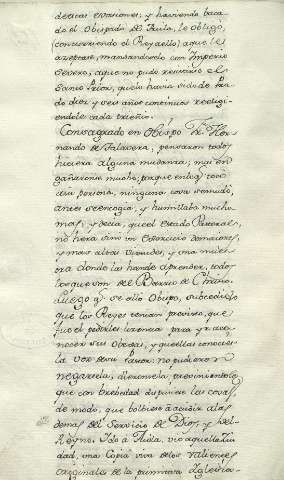 desicas evasiones; y haviendo baca
do el Obispado de Avila, le obligó,
(concurriendo el Rey a ello) a que le
azeptase, mandandoselo con Imperio
severo, a que no pudo resistirse el
Santo Prior, que lo havia sido de Pra
do diez y seis años continuos reeligi
endole cada trienio.
Consagrado en Obispo Dn. Fer
nando de Talavera, pensaron todos
hiciera alguna mudanza; mas en
gañaronse mucho, porque en lo q. toco
à su persona, ninguna cosa se mudó,
antes se encogia, y humillaba mucho
mas; y decia, que el estado Pastoral,
no hera sino un exercicio de maiores,
y mas altas virtudes, y una
donde las han de aprender, todos
los que son del Rebaño de Christo.
Luego q. se vio Obispo, subcedió lo
que los Reyes tenian previsto, que
fue el pedirles licencia para yr a co
nocer sus Obejas, y que ellas conocies
en la voz de su Pastor: no pudieron
negarsela; dieronsela, previniendole
que con brebedad dispusiese las cosas,
de modo, que bolbiese a acudir a las
demas del Servicio de Dios, y del
Reyno. Ydo à Avila, vio aquella Ciu
dad, una Copia viva de los valientes
originales de la primitiva Iglesia